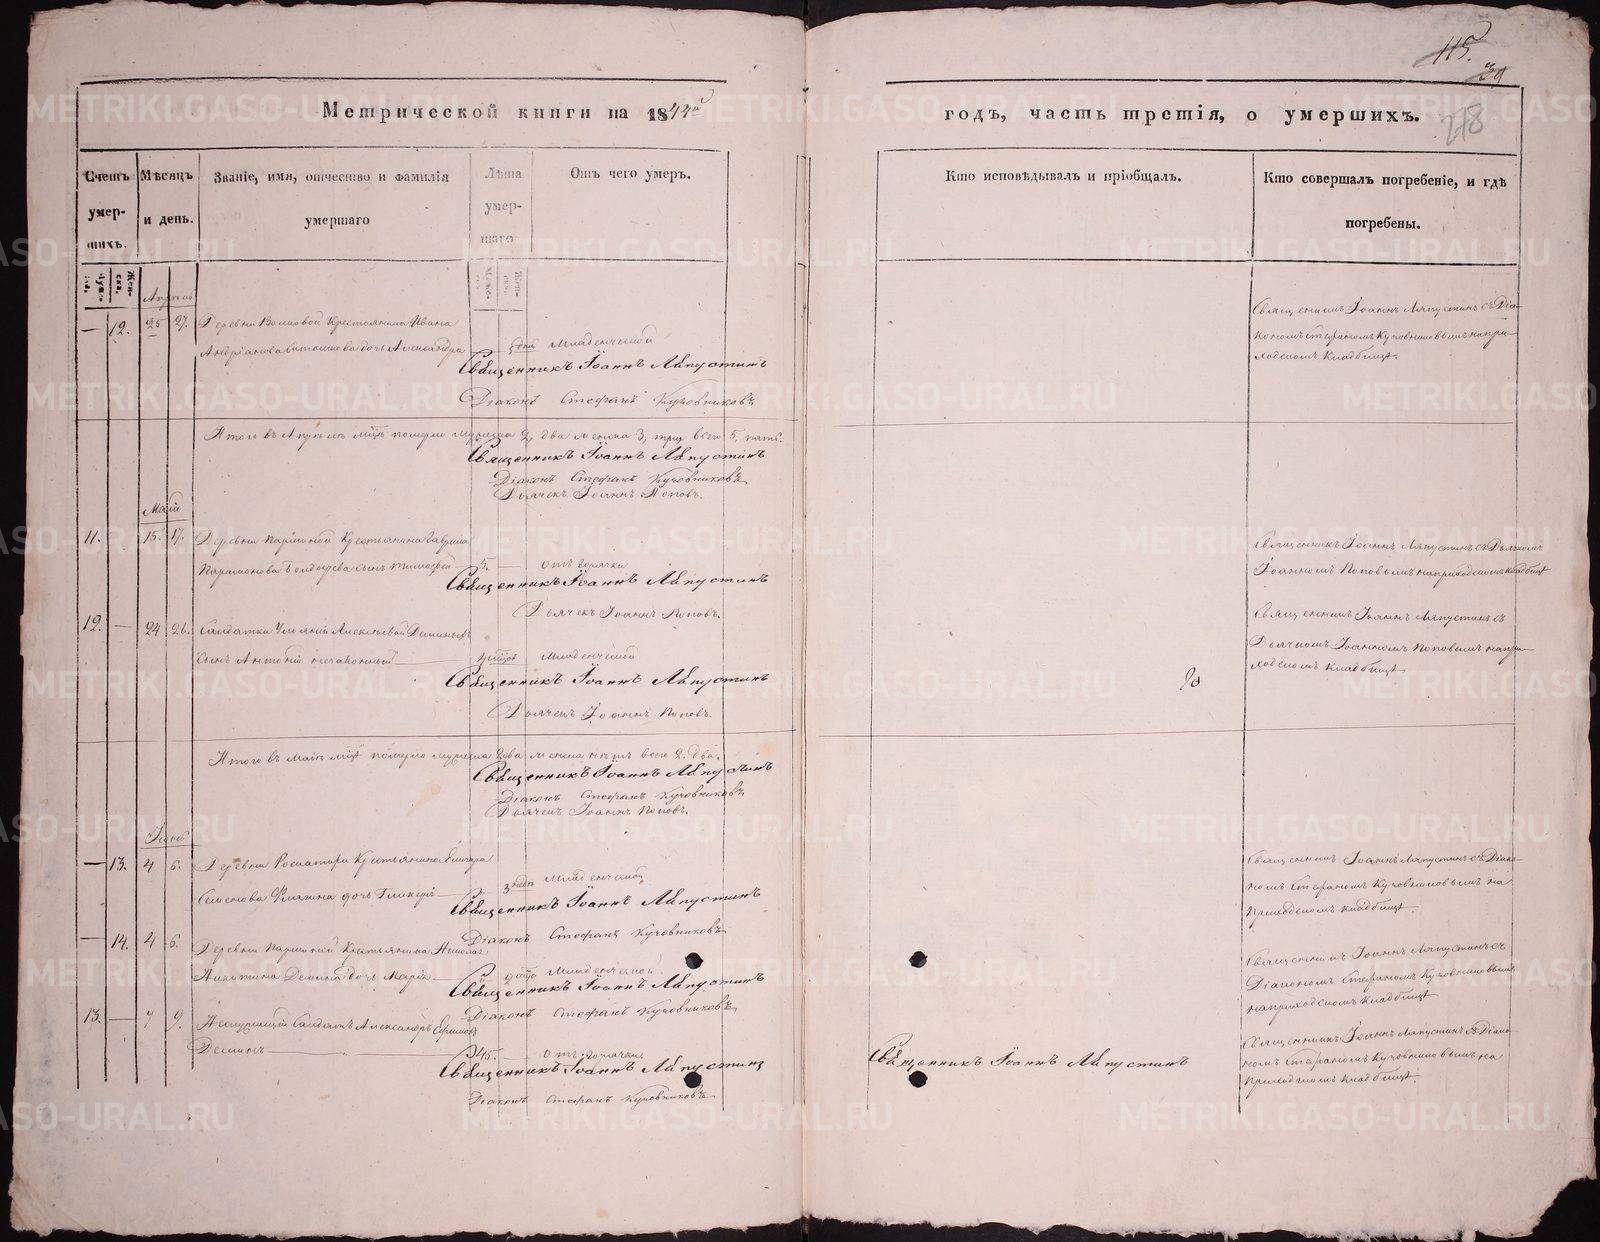 115.
39
278
Метрической книги на 1844й
годъ, часть третія, о умершихъ.
Счетъ умер-шихъ.
Мѣсяцъ и день.
Званіе, имя, отчество и фамилія умершаго
Лѣта умер-шаго
Отъ чего умеръ.
Кто исповѣдывалъ и пріобщалъ.
Кто совершалъ погребеніе, и гдѣ погребены.
Апрѣль
— 12. 25 27. Деревни Волковой Крестьянина Ивана
Андріанова дочь Александра
Младенческой
Священникъ Іоаннъ Ляпустинъ
Діаконъ Стефанъ Кузовниковъ
Священникъ Іоаннъ Ляпустинъ съ Діа-
кономъ Стефаномъ Кузовниковымъ на при-
ходскомъ кладбищѣ.
Итого въ Апрѣлѣ мцѣ померло мужеска 2, два женска 3, три всего 5. пять.
Священникъ Іоаннъ Ляпустинъ
Діаконъ Стефанъ Кузовниковъ
Дьячекъ Іоаннъ Поповъ.
Маій
11. 15. 17. Деревни Паршиной Крестьянина Гаврила
Парамонова сынъ Тимофей 5. — Отъ горячки
Священникъ Іоаннъ Ляпустинъ
Дьячекъ Іоаннъ Поповъ.
Священникъ Іоаннъ Ляпустинъ съ Дьячкомъ
Іоанномъ Поповымъ на приходскомъ кладбищѣ
12. — 24 26. Салдатки Алексѣевой Деминыхъ
сынъ Антоній незаконный
Младенческой
Священникъ Іоаннъ Ляпустинъ
Дьячекъ Іоаннъ Поповъ.
Священникъ Іоаннъ Ляпустинъ съ
Дьячкомъ Іоанномъ Поповымъ на при-
ходскомъ кладбищѣ
Итого въ маіѣ мцѣ померло мужеска 2 два женска нѣтъ всего 2. два.
Священникъ Іоаннъ Ляпустинъ
Діаконъ Стефанъ Кузовниковъ
Дьячекъ Іоаннъ Поповъ.
Іюнь
— 13. 4 6. Деревни Крестьянина
Семенова дочь Гликерія
Младенческой
Священникъ Іоаннъ Ляпустинъ
Діаконъ Стефанъ Кузовниковъ
Священникъ Іоаннъ Ляпустинъ съ Діако-
номъ Стефаномъ Кузовниковымъ на
приходскомъ кладбищѣ.
— 14. 4 6. Деревни Паршиной Крестьянина
Никитина Демина дочь Марія
Младенческой
Священникъ Іоаннъ Ляпустинъ
Діаконъ Стефанъ Кузовниковъ
Священникъ Іоаннъ Ляпустинъ съ
Діакономъ Стефаномъ Кузовниковымъ
на приходскомъ кладбищѣ
13. — 7 9. Неслужащій Салдатъ Александръ
Деминъ 45. — Отъ горячки
Священникъ Іоаннъ Ляпустинъ
Діаконъ Стефанъ Кузовниковъ
Священникъ Іоаннъ Ляпустинъ
Священникъ Іоаннъ Ляпустинъ съ Діако-
номъ Стефаномъ Кузовниковымъ на
приходскомъ кладбищѣ.
METRIKI.GASO-URAL.RU